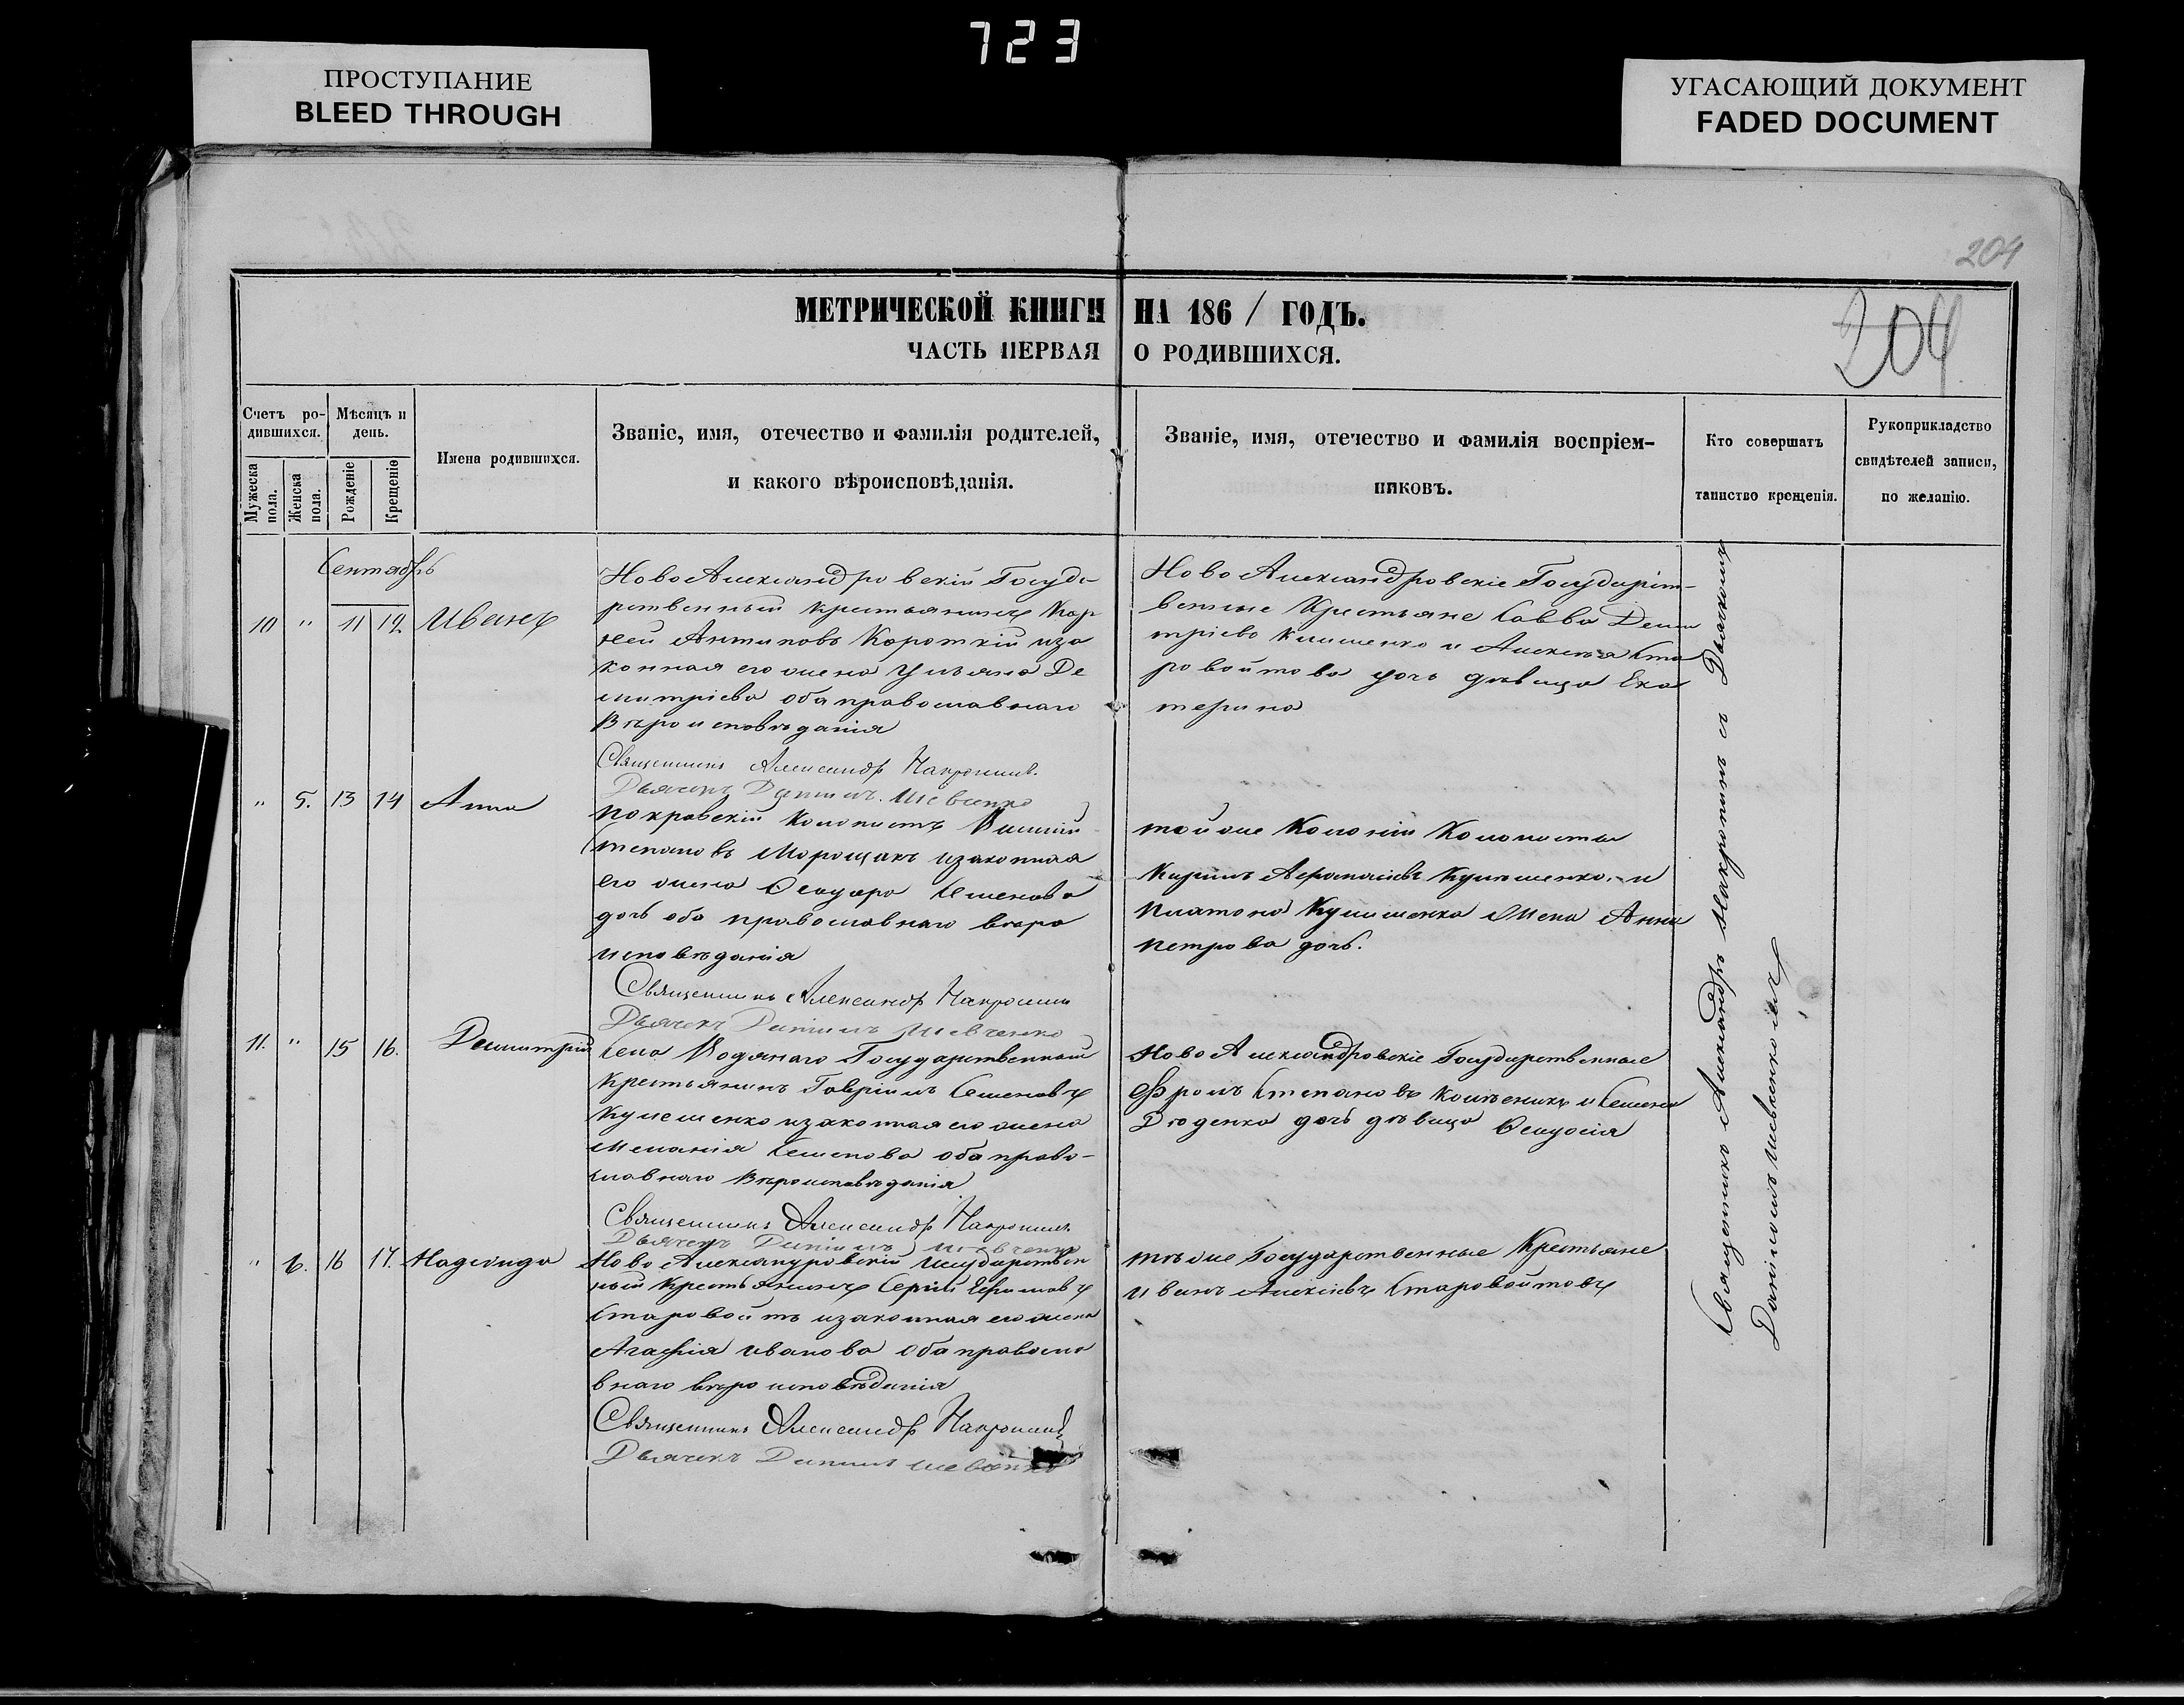 723
ПРОСТУПАНИЕ
BLEED THROUGH
УГАСАЮЩИЙ ДОКУМЕНТ
FADED DOCUMENT
204
204
МЕТРИЧЕСКОЙ КНИГИ НА 186/ ГОДЪ.
ЧАСТЬ ПЕРВАЯ О РОДИВШИХСЯ.
Счетъ ро-
дившихся.
Мужеска
пола.
Женска
пола.
Мѣсяцъ и
день.
Рожденіе
Крещеніе
Имена родившихся.
Званіе, имя, отечество и фамилія родителей,
и какого вѣроисповѣданія.
Званіе, имя, отечество и фамилія воспріем-
никовъ.
Кто совершатъ
таинство крещенія.
Рукоприкладство
свидѣтелей записи,
по желанію.
Сентябрь
10 " 11 12 Иванъ
Ново Александровскій Госуда
рственный крестьянинъ Кор
ней Антиповъ Короткій иза
конная его жена Ульяна Де
митріева оба православнаго
Вѣроисповѣданія
Священникъ Александръ
Дьячекъ Даніилъ Шевченко
Ново Александровскіе Государст-
венные Крестьяне Савва Деми
тріевъ и Алексея Ста
ровойтова дочь дѣвица Ека
терина
" 5. 13 14 Анна
Покровскій Колонистъ
Степановъ Морощакъ изаконная
его жена Феодора Семенова
дочь оба православнаго вѣро
исповѣданія
Священникъ Александръ
Дьячекъ Даніилъ Шевченко
той же Колоніи Колонисты
Кирилъ и
Платона жена Анна
Петрова дочь.
11. " 15 16. Демитрій
Села Водянаго Государственный
Крестьянинъ Гавріилъ Семеновъ
Кулешенко изаконная его жена
Меланія Семенова оба право-
славнаго Вѣроисповѣданія
Священникъ Александръ
Дьячекъ Даніилъ Шевченко
Ново Александровскіе Государственные
Фролъ Степановъ и Семена
Дюденка дочь дѣвица Феодосія
" 6. 16 17. Надежда
Ново Александровскій Государствен
ный Крестьянинъ Сергій Ефимовъ
Старовойтъ изаконная его жена
Агафія Иванова оба правосла
внаго вѣроисповѣданія
Священникъ Александръ
Дьячекъ Даніилъ Шевченко
тѣ же Государственные Крестьяне
Иванъ Алексіевъ Старовойтовъ
Священникъ Александръ съ Дьякомъ
Даніиломъ Шевченкомъ